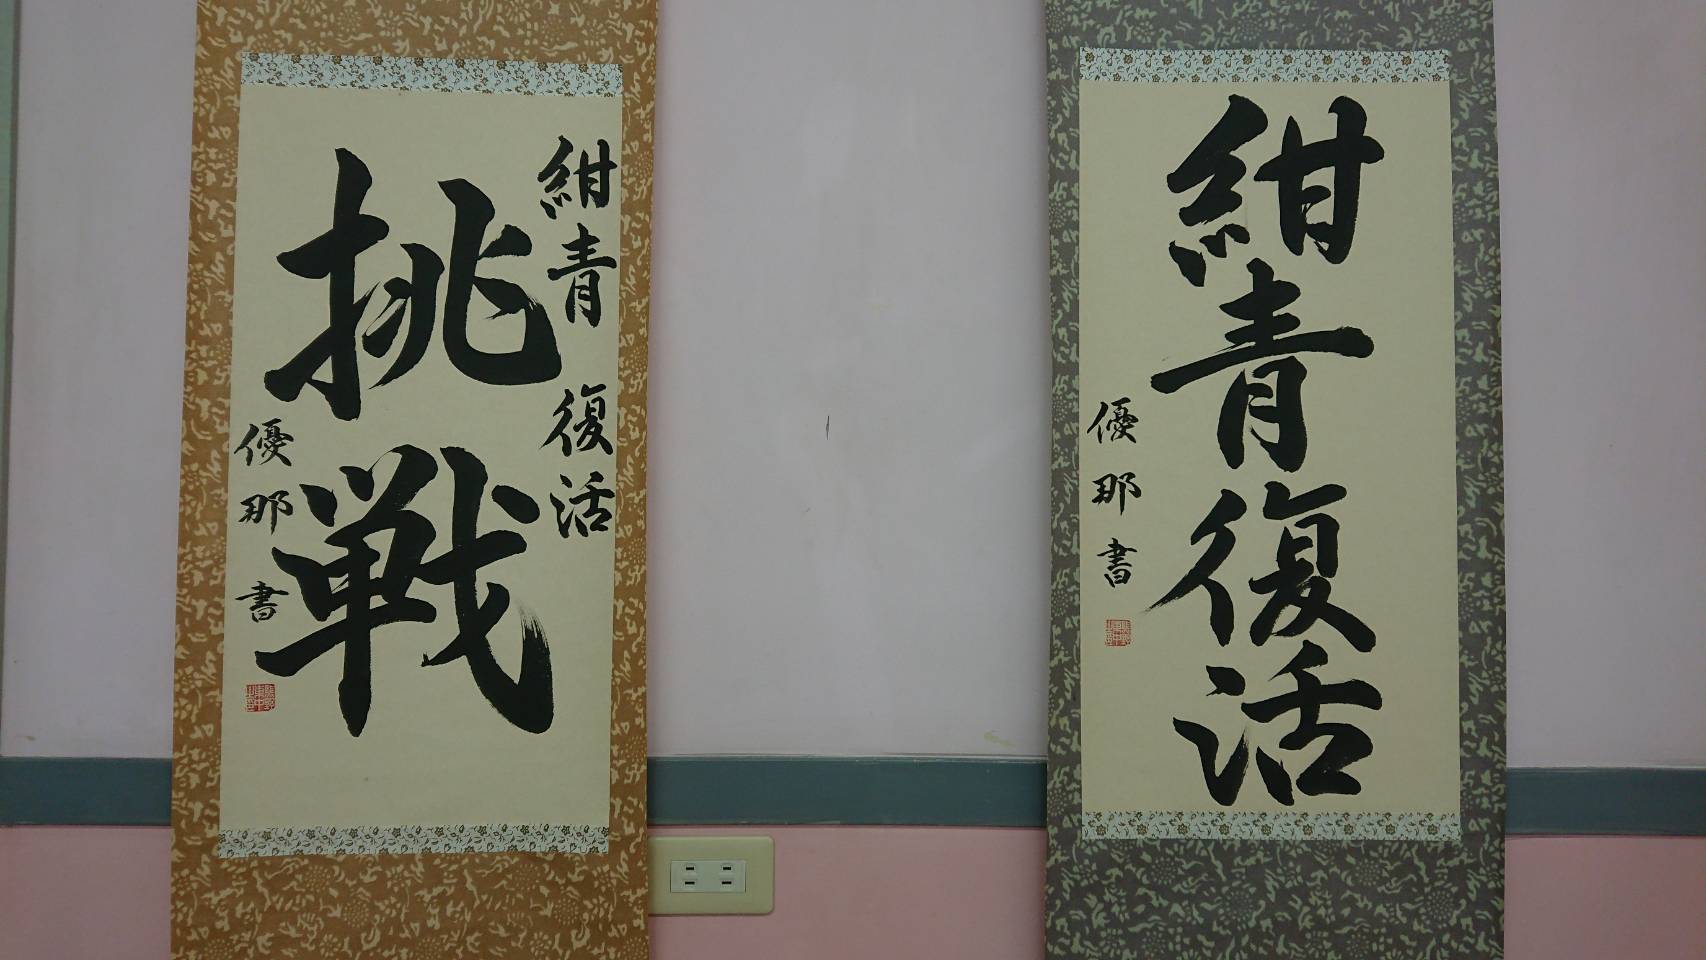 紺青 復活
挑戦
優那書
紺青復活
優那書